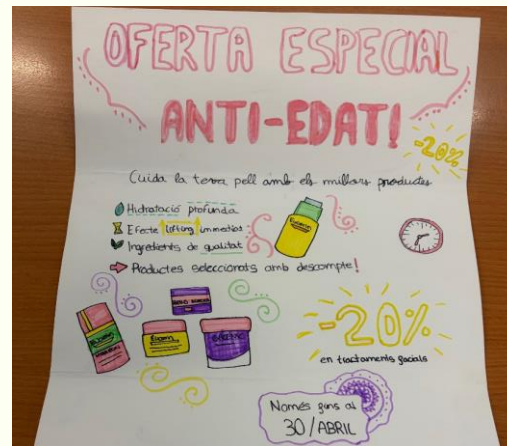 OFERTA ESPECIAL
ANTI-EDAT!
-20%
Cuida la teva pell amb els millors productes
Hidratació profunda
Efecte lifting immediat
Ingredients de qualitat
Productes seleccionats amb descompte!
-20%
en tractaments facials
Només fins al
30/ABRIL